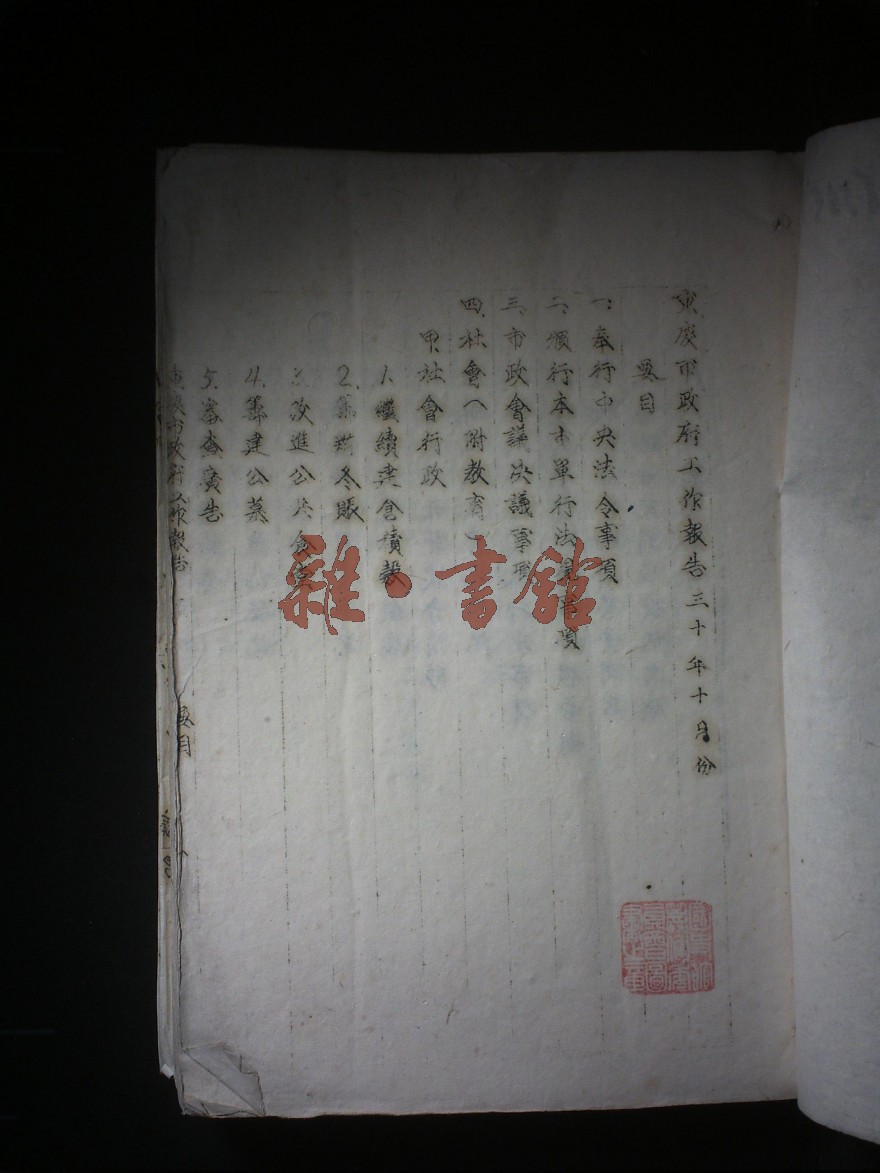 重慶市政府工作報告三十年十月份
要目
一、奉行中央法令事項
二、頒行本市單行法規事項
三、市政會議決議事項
四、社會(附教育)
甲、社會行政
1.繼續建倉積穀
2.籌辦冬賑
3.改進公共食堂
4.籌建公墓
5.審查廣告
重慶市政府工作報告
要目
雜·書館